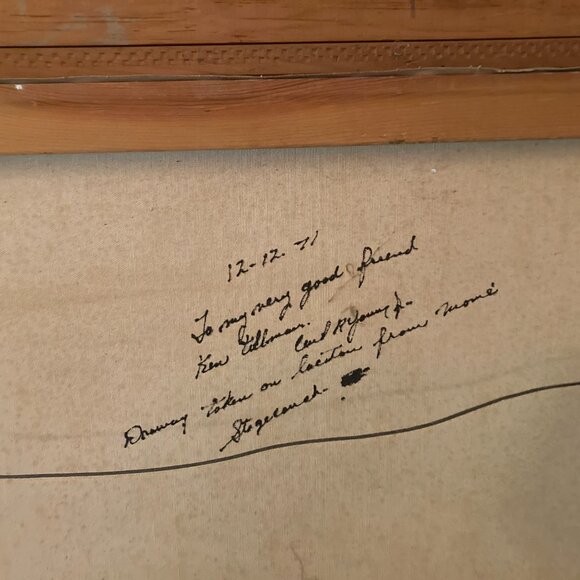 12-12-71
To my very good friend
Ken
Carl R Young Jr-
Drawing taken on location from movie
Stagecoach-